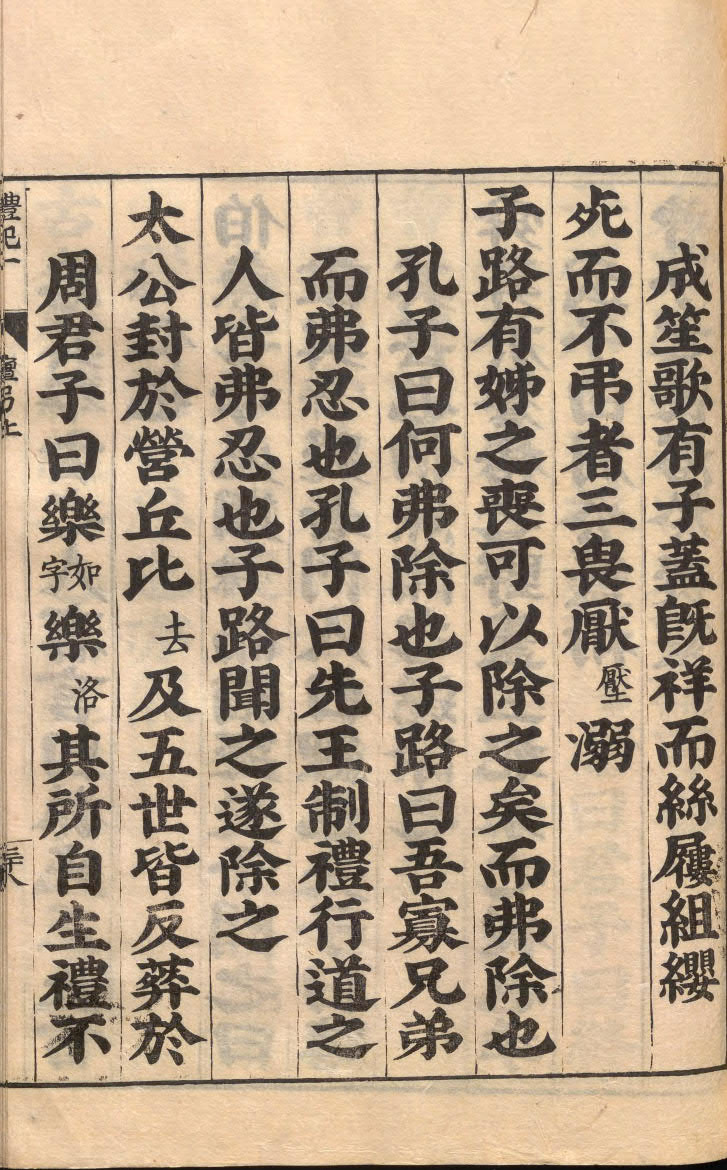 成笙歌有子蓋旣祥而絲屨組纓
死而不弔者三畏厭壓溺
子路有姊之喪可以除之矣而弗除也
孔子曰何弗除也子路曰吾寡兄弟
而弗忍也孔子曰先王制禮行道之
人皆弗忍也子路聞之遂除之
太公封於營丘比去及五世皆反葬於
周君子曰樂如字樂洛其所自生禮不
禮記一 檀弓上